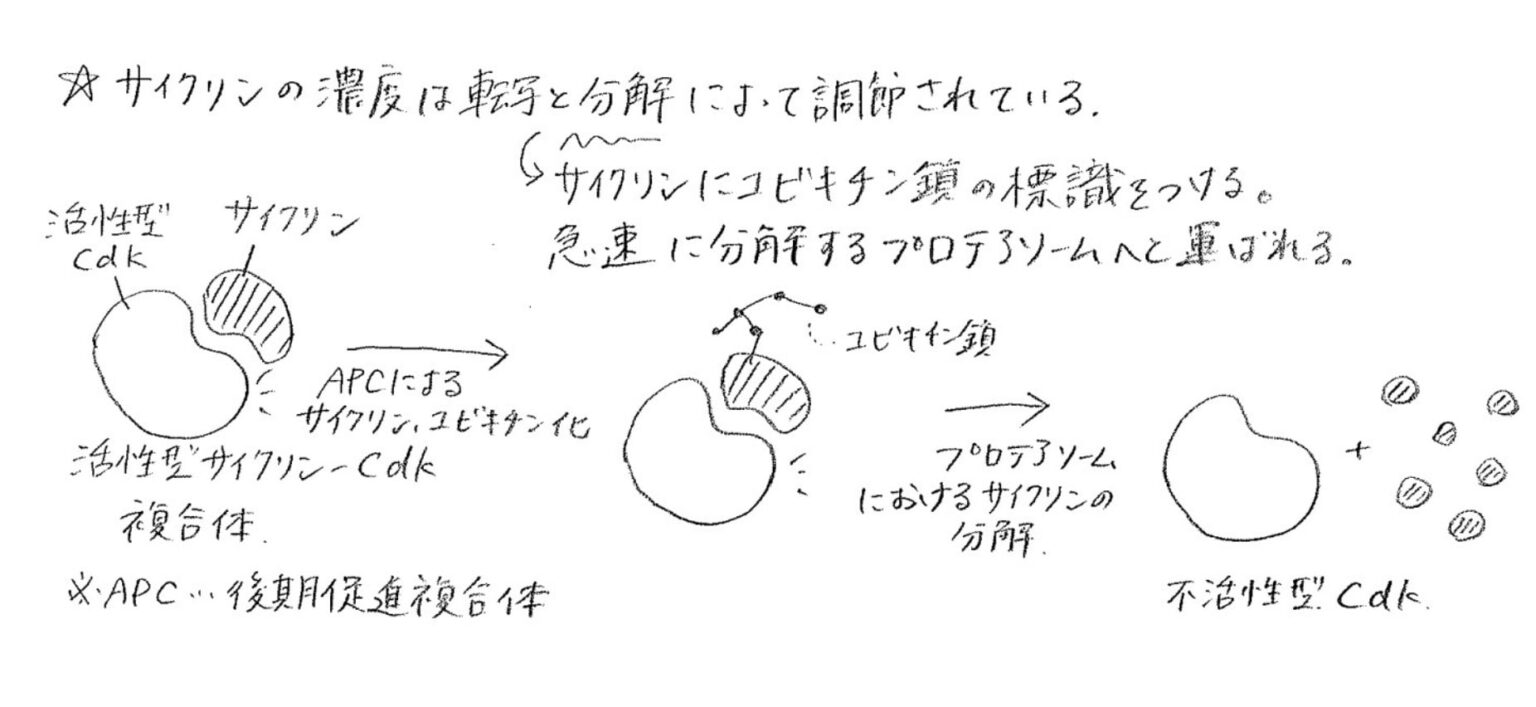 ☆ サイクリンの濃度は転写と分解によって調節されている.
サイクリンにユビキチン鎖の標識をつける。
急速に分解するプロテアソームへと運ばれる。
活性型
Cdk
サイクリン
ユビキチン鎖
APCによる
サイクリン、ユビキチン化
活性型サイクリン-Cdk
複合体.
プロテアソーム
におけるサイクリンの
分解.
+
※APC…後期促進複合体
不活性型Cdk.